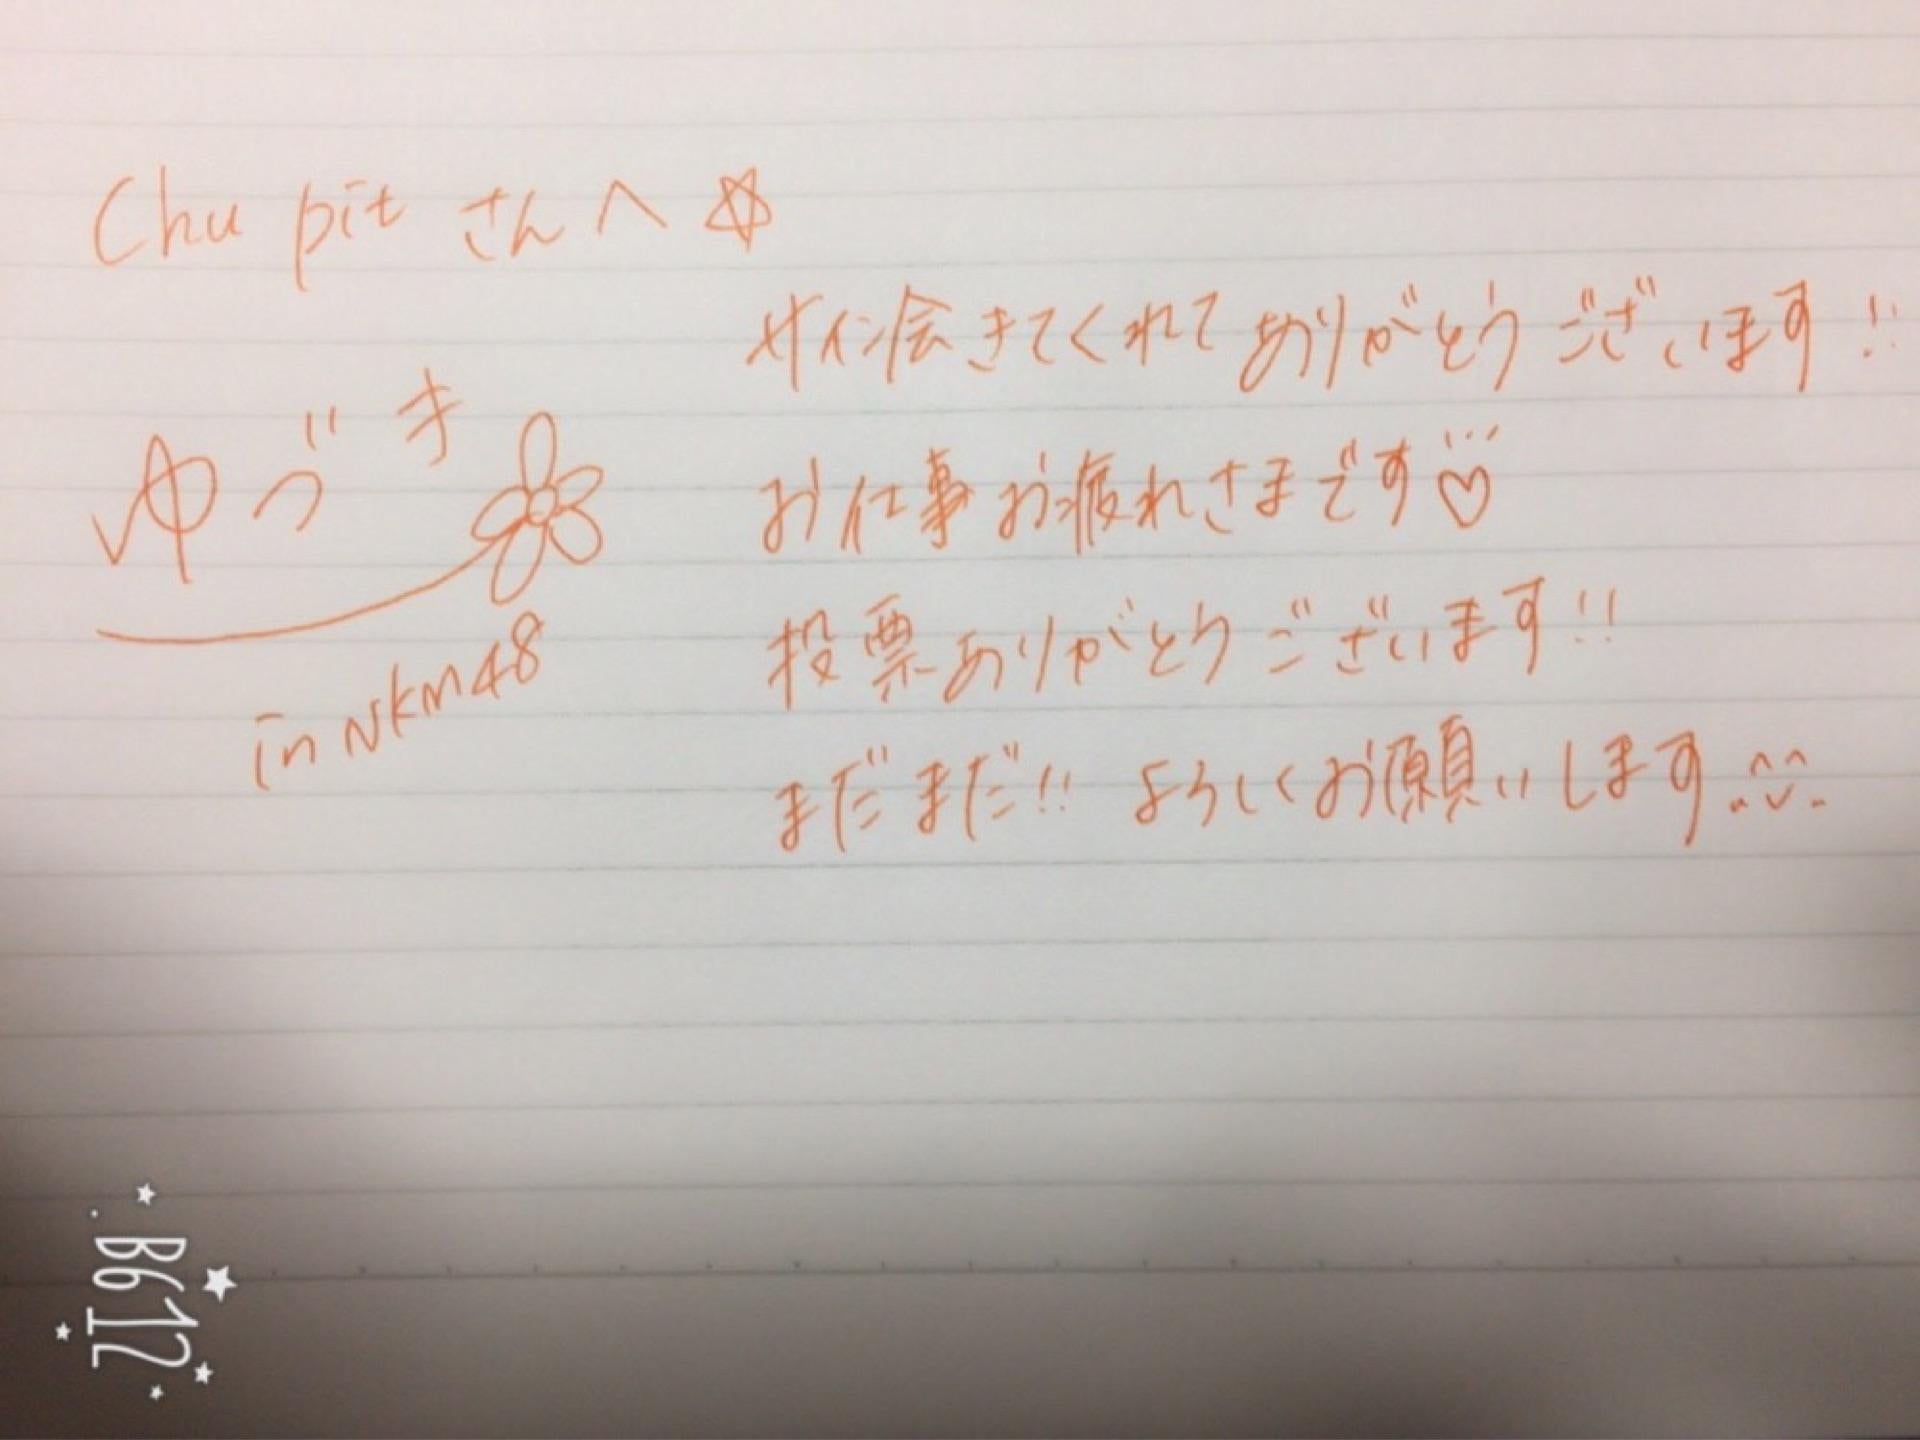 Chu pit さんへ ☆
サイン会きてくれてありがとうございます!!
ゆづき
in NKM48
お仕事お疲れさまです♡
投票ありがとうございます!!
まだまだ!! よろしくお願いします
B612